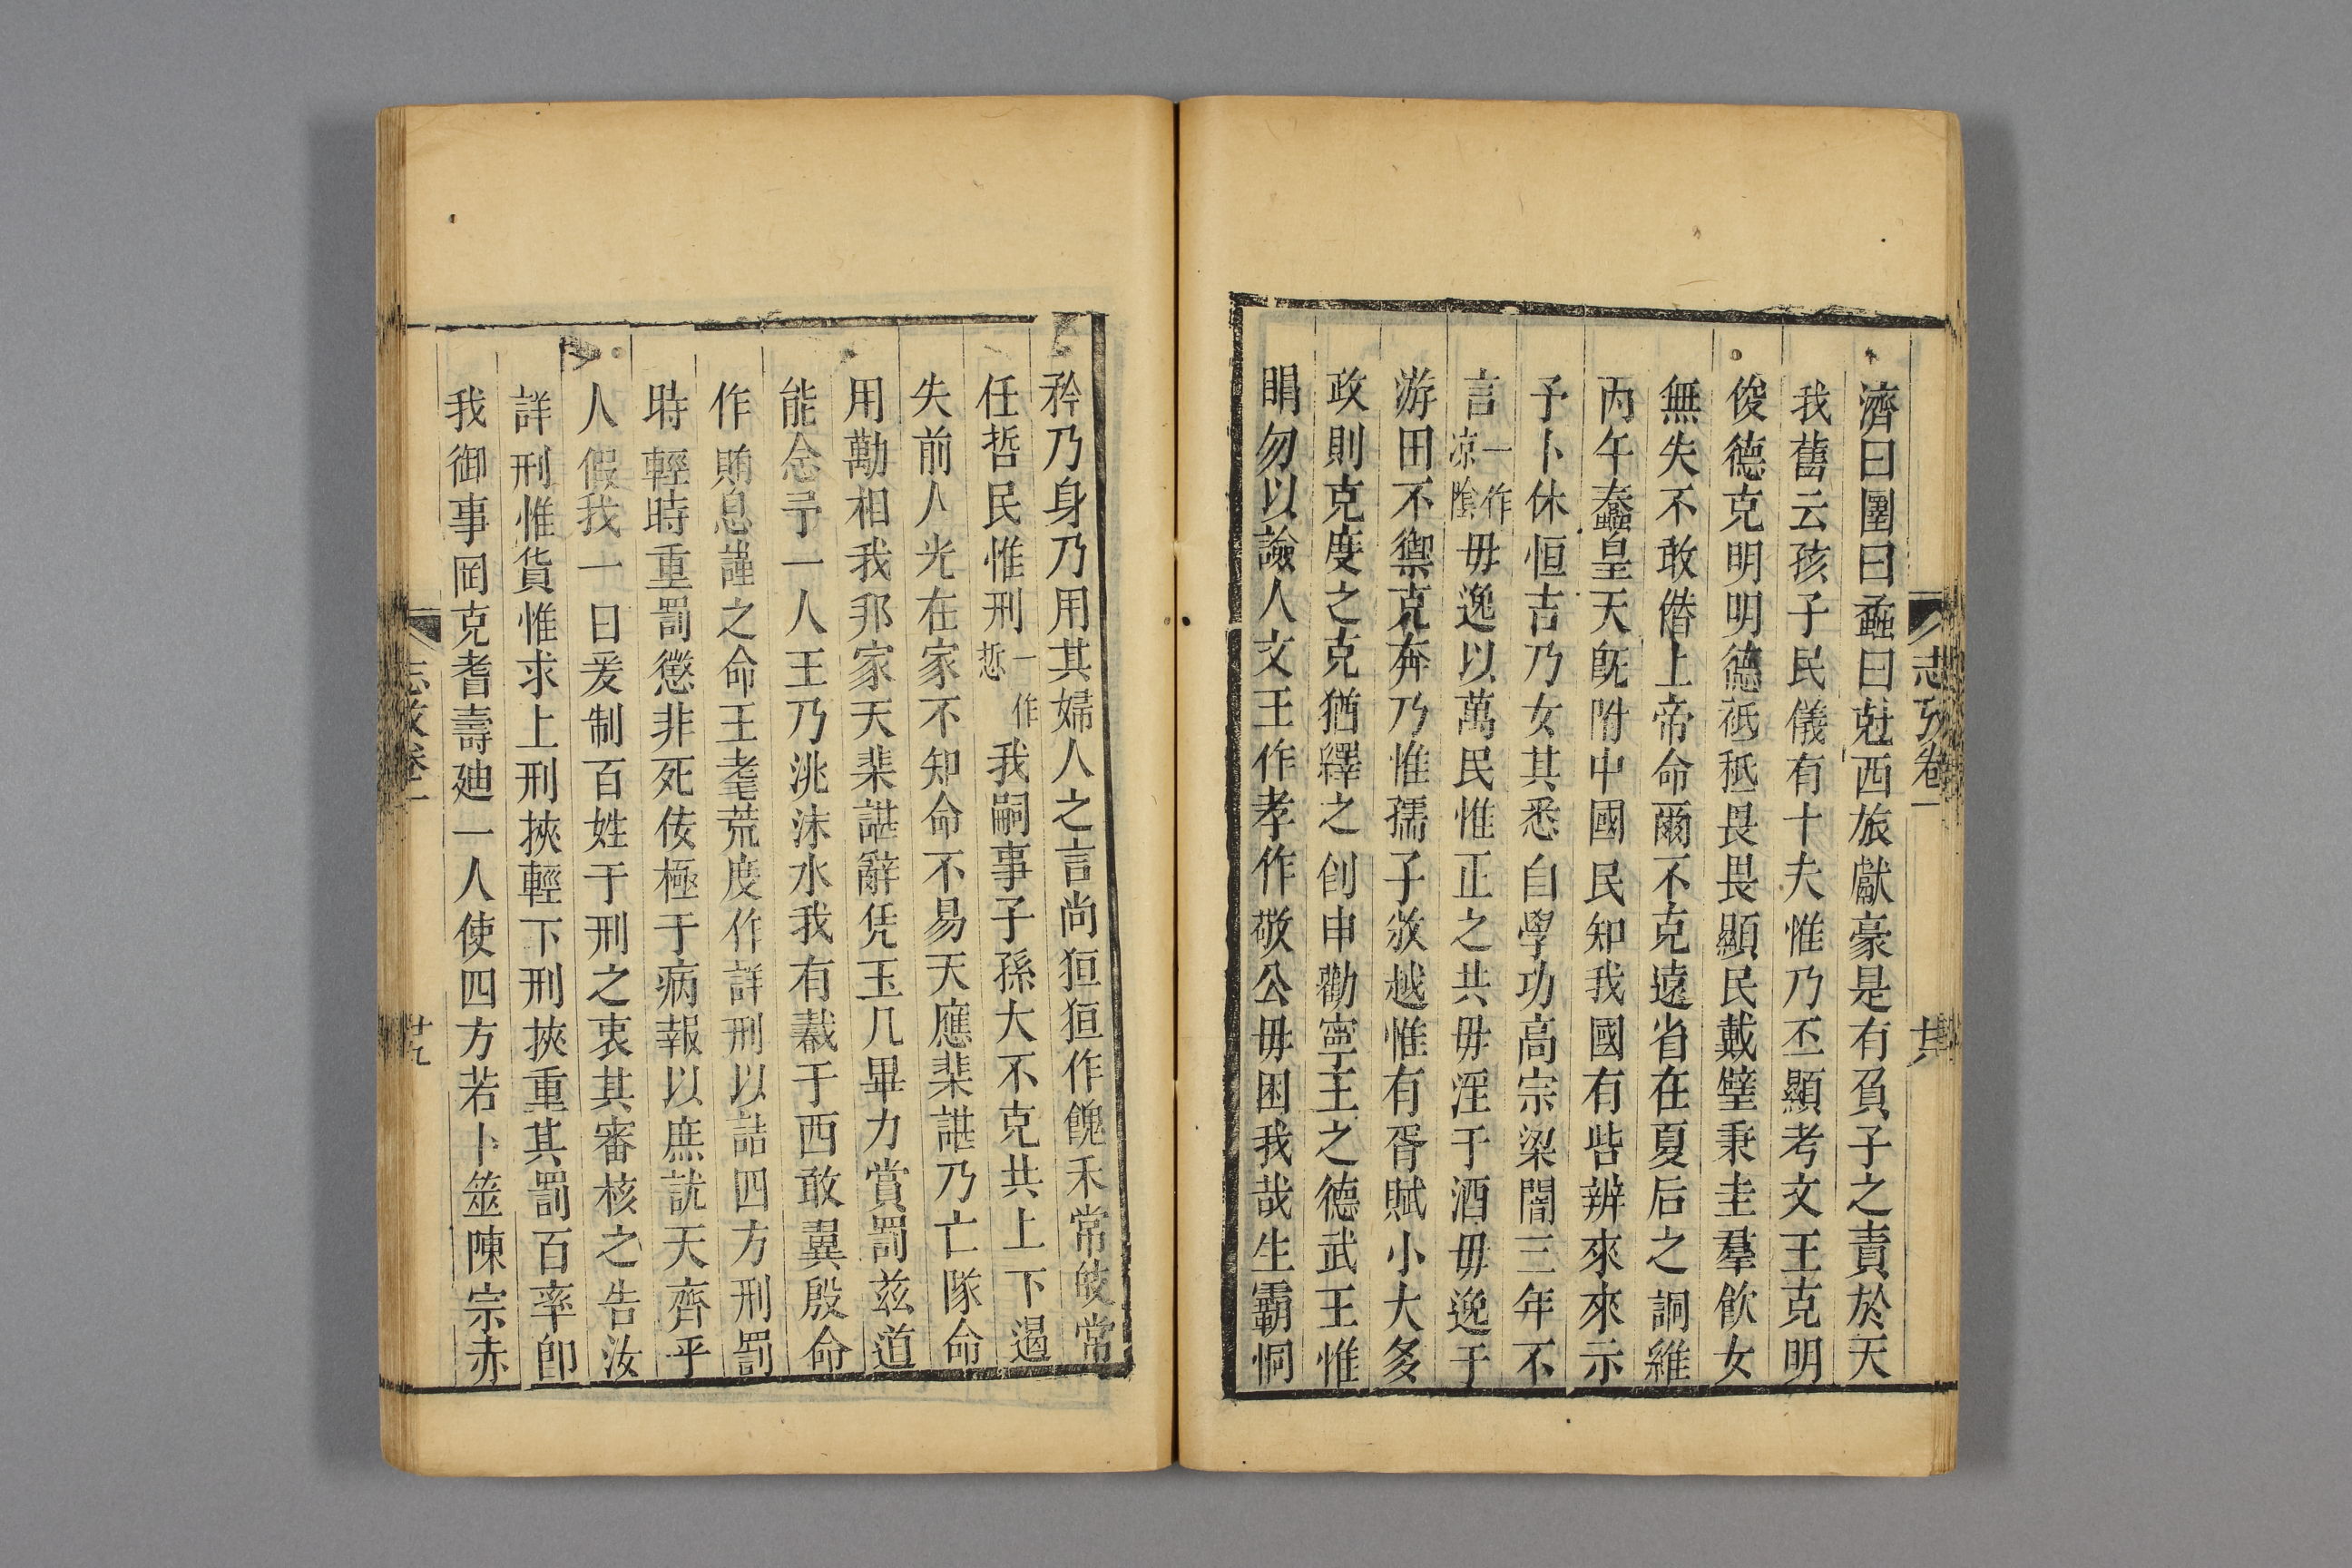 志攷卷一
廿八
濟曰圛曰蟊曰尅西旅獻豪是有負子之責於天
我舊云孩子民儀有十夫惟乃丕顯考文王克明
俊德克明明德祗祗畏畏顯民戴璧秉圭羣飲女
無失不敢僭上帝命爾不克遠省在夏后之詷維
丙午蠢皇天旣附中國民知我國有呰辨來來示
予卜休恒吉乃女其悉自學功高宗梁闇三年不
言一作凉陰毋逸以萬民惟正之共毋淫于酒毋逸于
游田不禦克奔乃惟孺子攽越惟有胥賦小大多
政則克度之克猶繹之創申勸寧王之德武王惟
睊勿以譣人文王作孝作敬公毋困我哉生霸恫
矜乃身乃用其婦人之言尚狟狟作餽禾常敀常
任哲民惟刑一作悊我嗣事子孫大不克共上下遏
失前人光在家不知命不易天應棐諶乃亡隊命
用勱相我邦家天棐諶辭凭玉几畢力賞罰兹道
能念予一人王乃洮沬水我有蓺于西敢翼殷命
作賄息謹之命王耄荒度作詳刑以詰四方刑罰
時輕時重罰懲非死佞極于病報以庶訧天齊乎
人假我一日爰制百姓于刑之衷其審核之告汝
詳刑惟貨惟求上刑挾輕下刑挾重其罰百率卽
我御事罔克耆壽廸一人使四方若卜筮陳宗赤
志攷卷一
廿九